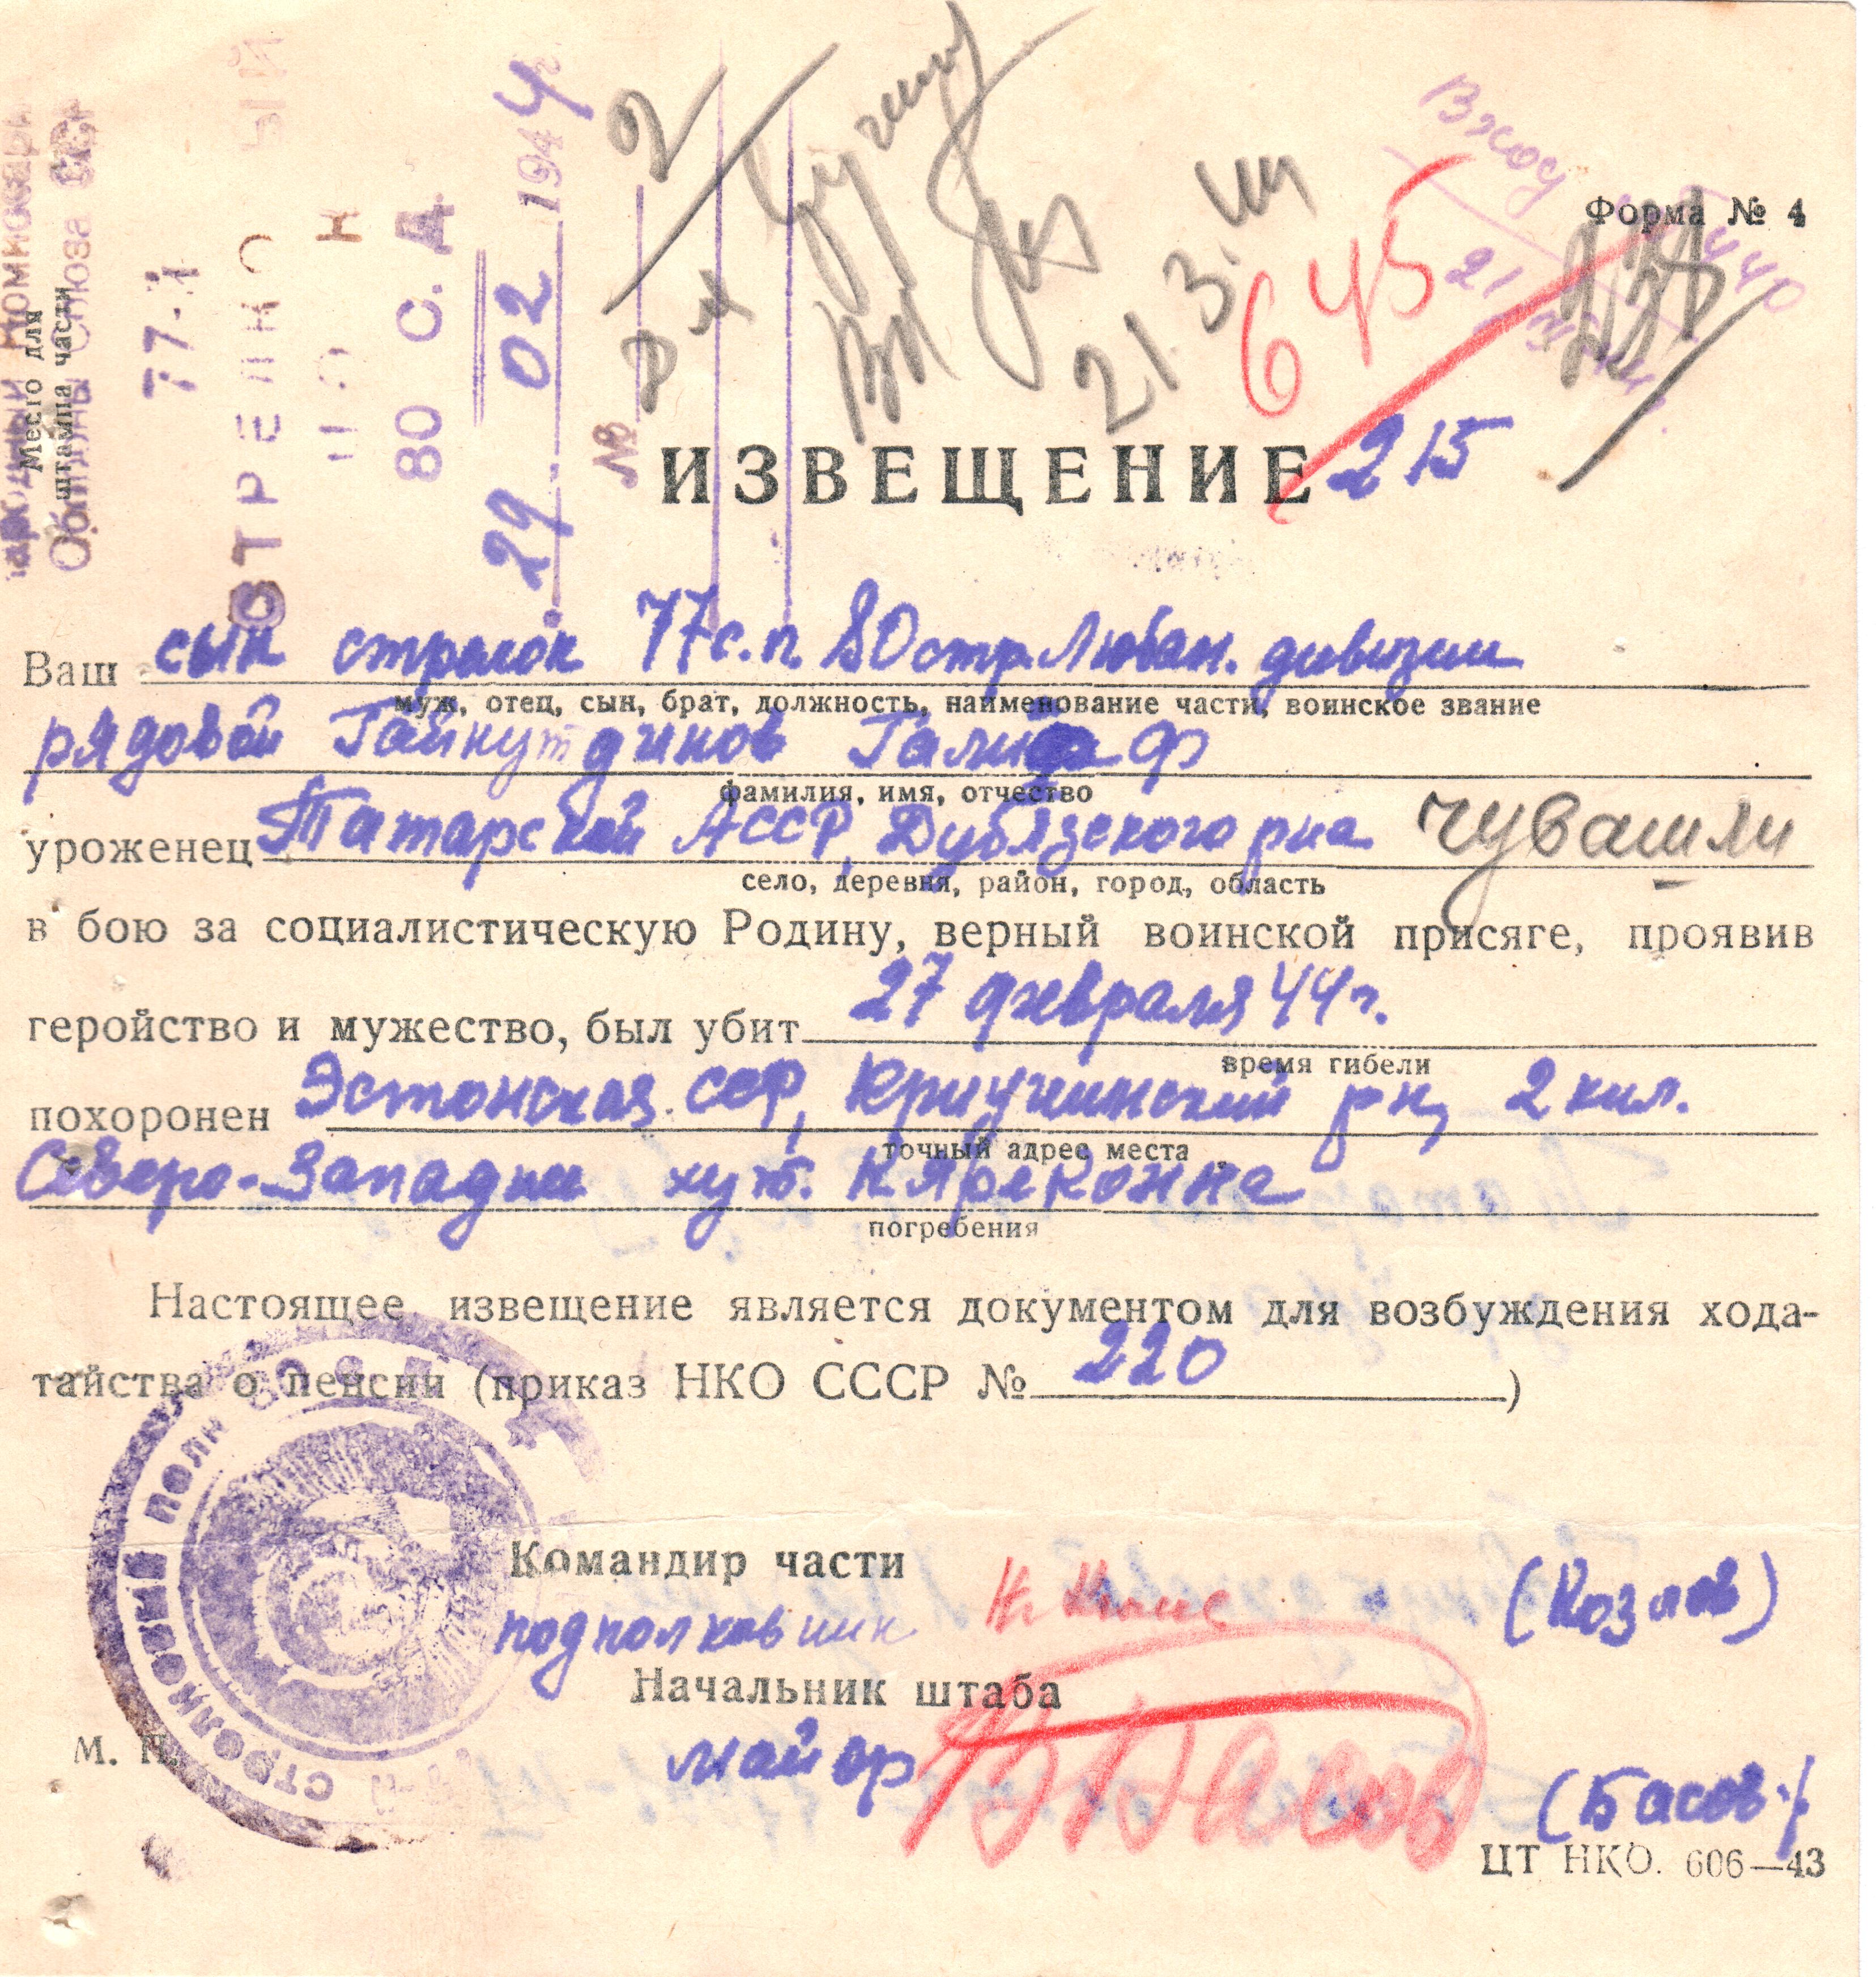 Народный Комиссариат
Обороны Союза ССР
Место для
штампа части
77-й
СТРЕЛКО ЫЙ
80 С. Д
29. 02 1944 г
№
21.3.
645
Вход
440
21
Форма № 4
ИЗВЕЩЕНИЕ 215
Ваш сын стрелок 77 с.п. 80 стр. Любан. дивизии
муж, отец, сын, брат, должность, наименование части, воинское звание
рядовой Гайнутдинов Ф
фамилия, имя, отчество
уроженец Татарской АССР, Дубязского р на Чувашли
село, деревня, район, город, область
в бою за социалистическую Родину, верный воинской присяге, проявив
геройство и мужество, был убит 27 февраля 44 г.
время гибели
похоронен Эстонская ССР, рн, 2 кил.
точный адрес места
Северо-Западнее хут. К.Яреконна
погребения
Настоящее извещение является документом для возбуждения хода-
тайства о пенсии (приказ НКО СССР № 220 )
СТРЕЛКОВЫЙ ПОЛК 80 С.Д.
Командир части
подполковник (Козлов)
Начальник штаба
М. П. майор Басов (Басов)
ЦТ НКО. 606—43